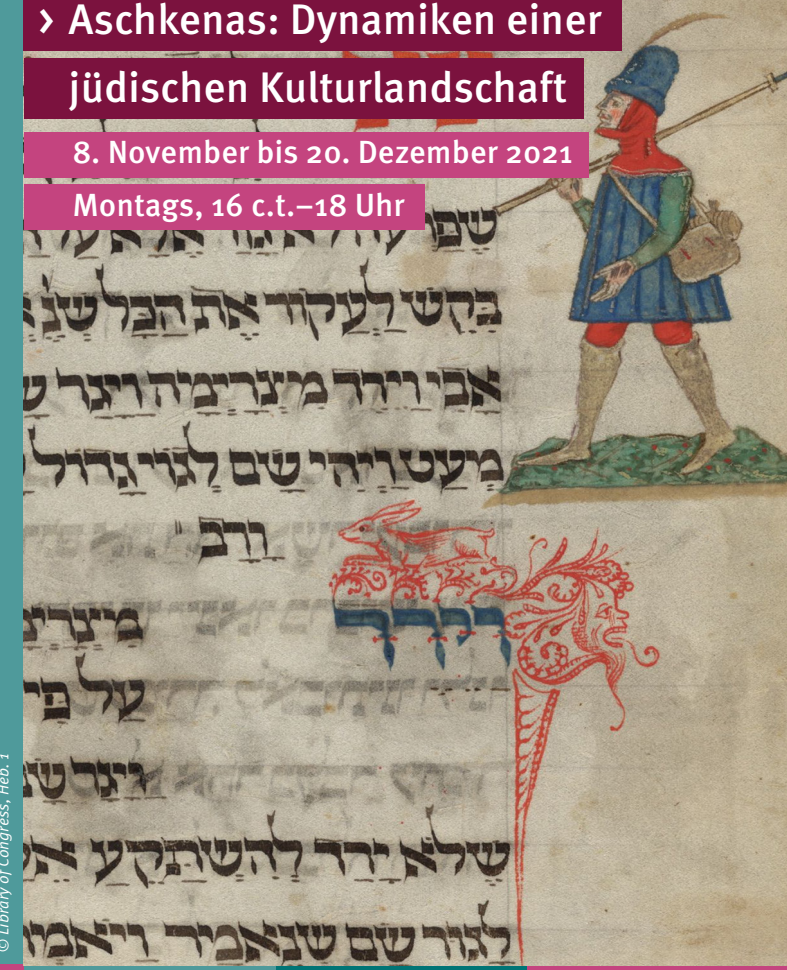 › Aschkenas: Dynamiken einer
jüdischen Kulturlandschaft
8. November bis 20. Dezember 2021
Montags, 16 c.t.–18 Uhr
שפרעה לא גזר אלא על
בקש לעקור את הכל שנא
אבי וירד מיצרימה ויגר
מיעט ויהי שם לגוי גדול
ורב
וירד
מיצרי
על פי
ויגר
שלא ירד להשתקע
לגור שם שנאמר ויאמרו
© Library of Congress, Heb. 1